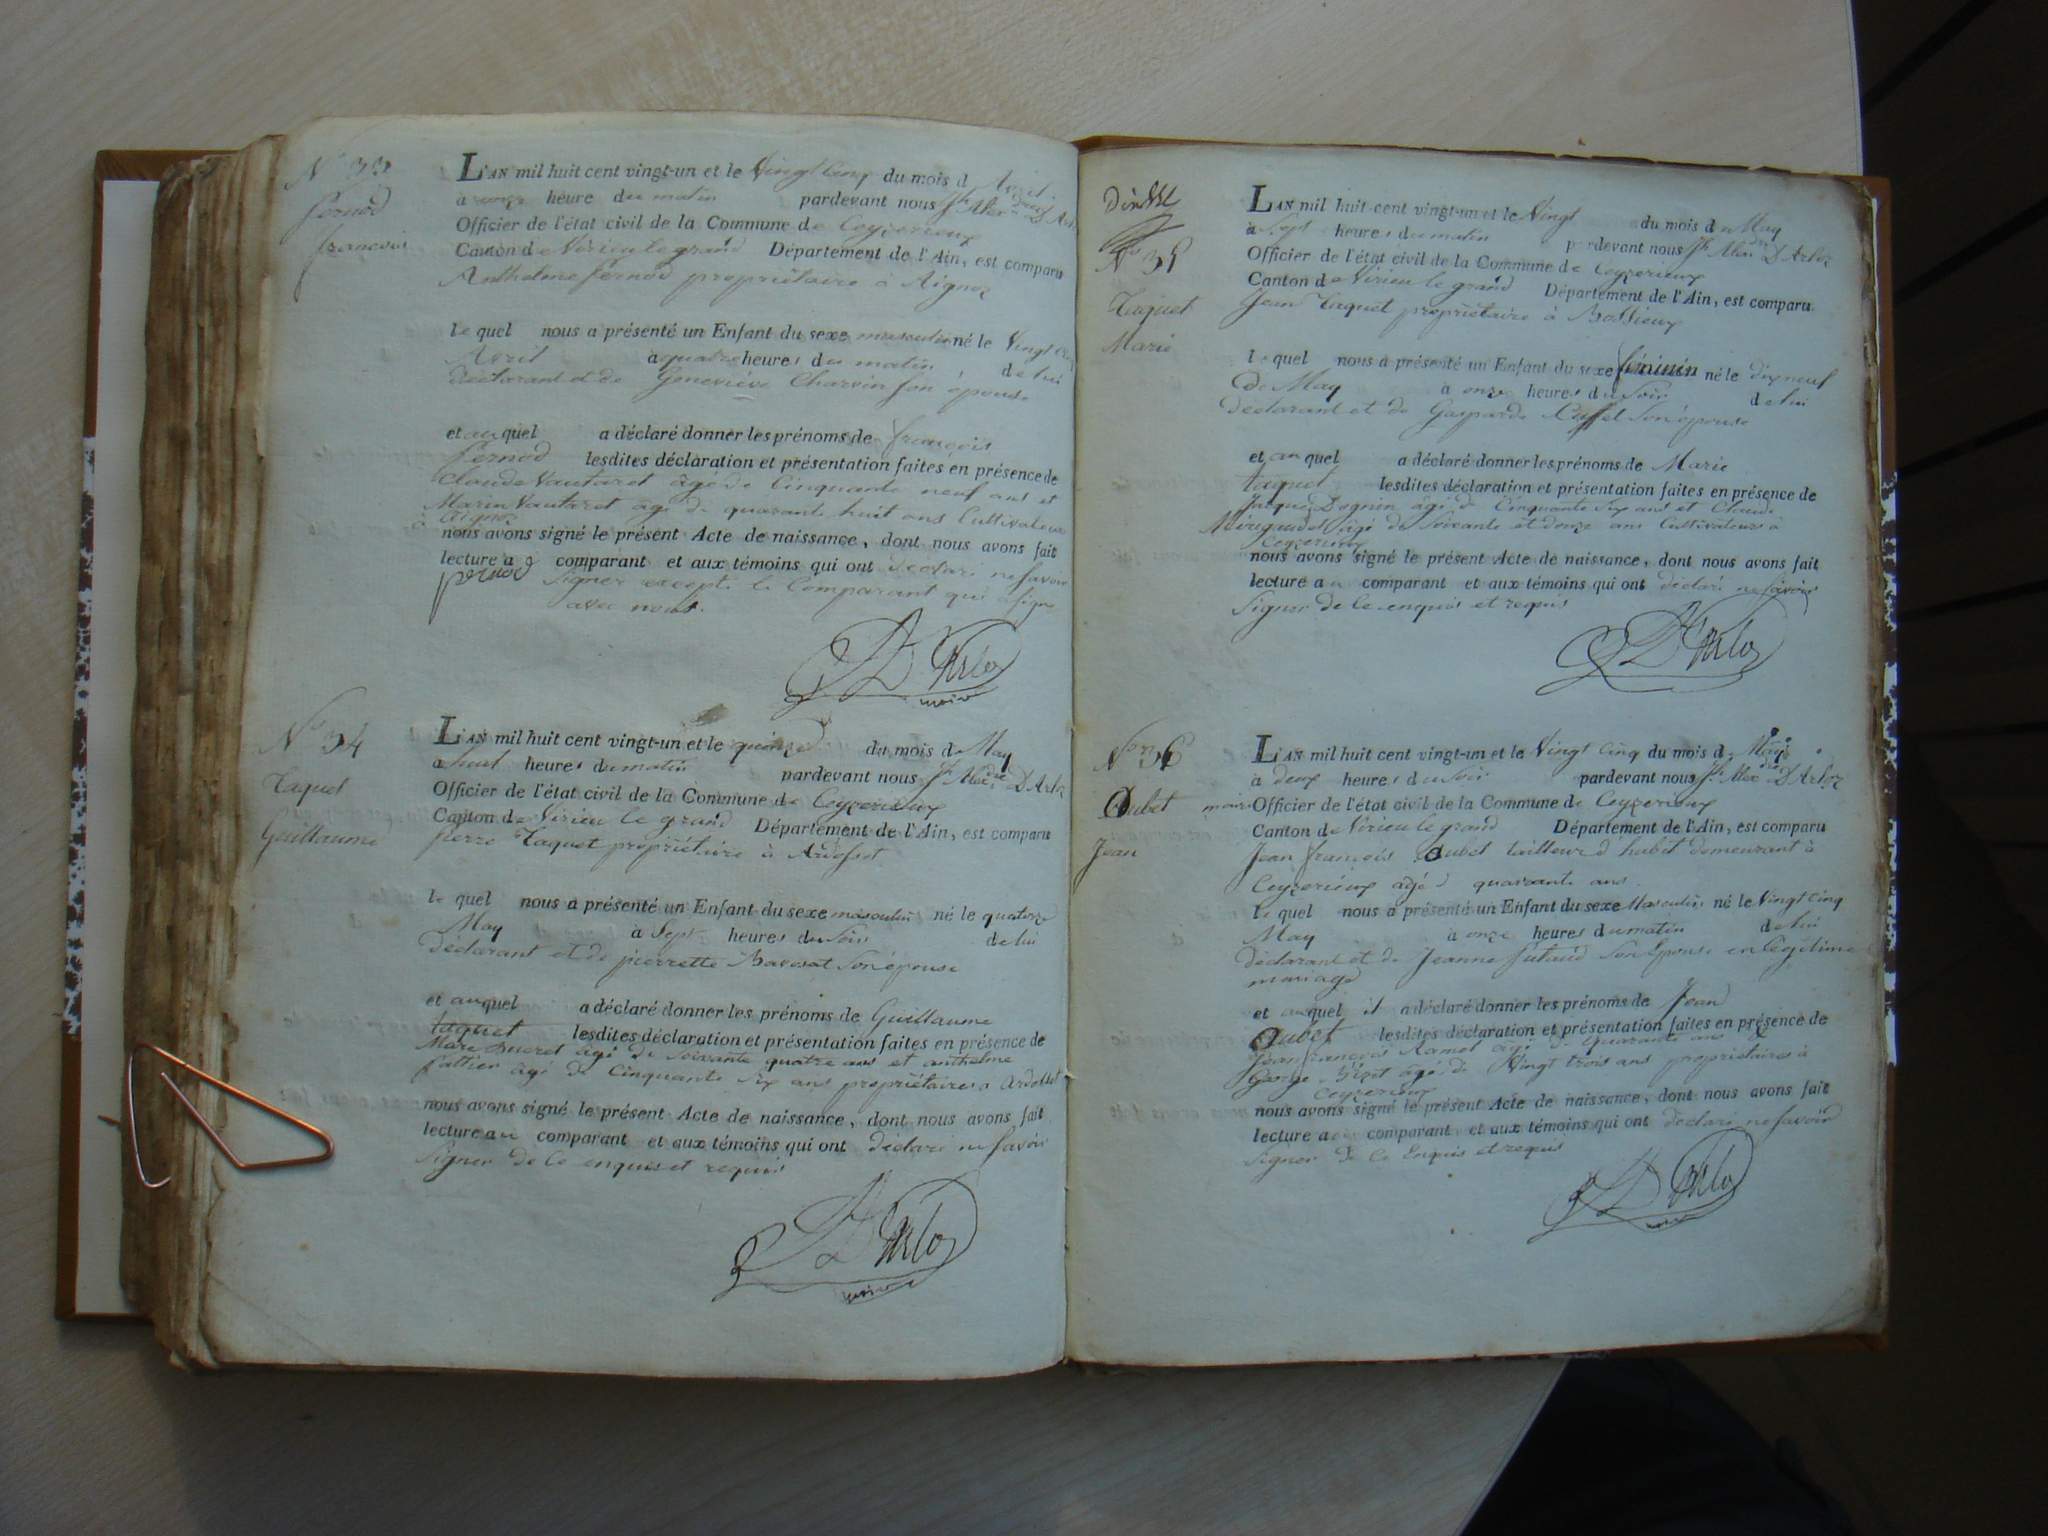 N° 33
Pernod
françois
L'AN mil huit cent vingt-un et le Vingt Cinq du mois d Avril
à onze heure du matin pardevant nous Jh Alexdre D'Arloz
Officier de l'état civil de la Commune de Ceyzerieux
Canton de Virieu le grand Département de l'Ain, est comparu
Anthelme Pernod propriétaire à Aignoz
le quel nous a présenté un Enfant du sexe masculin né le Vingt Cinq
Avril à quatre heures du matin de lui
déclarant et de Geneviève Charvin son épouse
et au quel a déclaré donner les prénoms de françois
Pernod lesdites déclaration et présentation faites en présence de
Claude Vautaret âgé de Cinquante neuf ans et
Marin Vautaret âgé de quarante huit ans Cultivateurs
à Aignoz
nous avons signé le présent Acte de naissance, dont nous avons fait
lecture au comparant et aux témoins qui ont déclaré ne savoir
pernod signer excepté le Comparant qui a signé
avec nous.
D'Arloz
maire
N° 34
Taquet
Guillaume
L'AN mil huit cent vingt-un et le quinze du mois de May
à huit heures du matin pardevant nous Jh Alexdre D'Arloz
Officier de l'état civil de la Commune de Ceyzerieux
Canton de Virieu le grand Département de l'Ain, est comparu
pierre Taquet propriétaire à Ardosset
le quel nous a présenté un Enfant du sexe masculin né le quatorze
May à Sept heures du Soir de lui
déclarant et de pierrette Bavosat Son épouse
et auquel a déclaré donner les prénoms de Guillaume
taquet lesdites déclaration et présentation faites en présence de
Marc Ducret âgé de Soixante quatre ans et anthelme
pattier âgé de Cinquante Six ans propriétaires à Ardosset
nous avons signé le présent Acte de naissance, dont nous avons fait
lecture au comparant et aux témoins qui ont déclaré ne savoir
signer de ce enquis et requis
D'Arloz
maire
N° 35
Taquet
Marie
L'AN mil huit cent vingt-un et le Vingt du mois de May
à Sept heures du matin pardevant nous Jh Alexdre D'Arloz
Officier de l'état civil de la Commune de Ceyzerieux
Canton de Virieu le grand Département de l'Ain, est comparu
Jean Taquet propriétaire à Bossieux
le quel nous a présenté un Enfant du sexe féminin né le dix neuf
de May à onze heures du Soir de lui
déclarant et de Gasparde Son épouse
et au quel a déclaré donner les prénoms de Marie
taquet lesdites déclaration et présentation faites en présence de
Jacques Dognin âgé de Cinquante Six ans et Claude
Mirigaudet âgé de Soixante et douze ans Cultivateurs à
Ceyzerieux
nous avons signé le présent Acte de naissance, dont nous avons fait
lecture au comparant et aux témoins qui ont déclaré ne savoir
Signer de ce enquis et requis
D'Arloz
N° 36
Oubet
Jean
L'AN mil huit cent vingt-un et le Vingt Cinq du mois de May
à deux heures du Soir pardevant nous Jh Alexdre D'Arloz
maire Officier de l'état civil de la Commune de Ceyzerieux
Canton de Virieu le grand Département de l'Ain, est comparu
Jean françois Oubet tailleur d habit demeurant à
Ceyzerieux agé d quarante ans.
le quel nous a présenté un Enfant du sexe Masculin né le Vingt Cinq
May à onze heures du matin de lui
déclarant et de Jeanne Son Epouse en légitime
mariage
et auquel il a déclaré donner les prénoms de Jean
Oubet lesdites déclaration et présentation faites en présence de
Jean françois Ramel âgé de quarante ans &
George âgé de Vingt trois ans propriétaires à
Ceyzerieux
nous avons signé le présent Acte de naissance, dont nous avons fait
lecture au comparant et aux témoins qui ont déclaré ne savoir
signer de Ce Enquis et requis
D'Arloz
maire